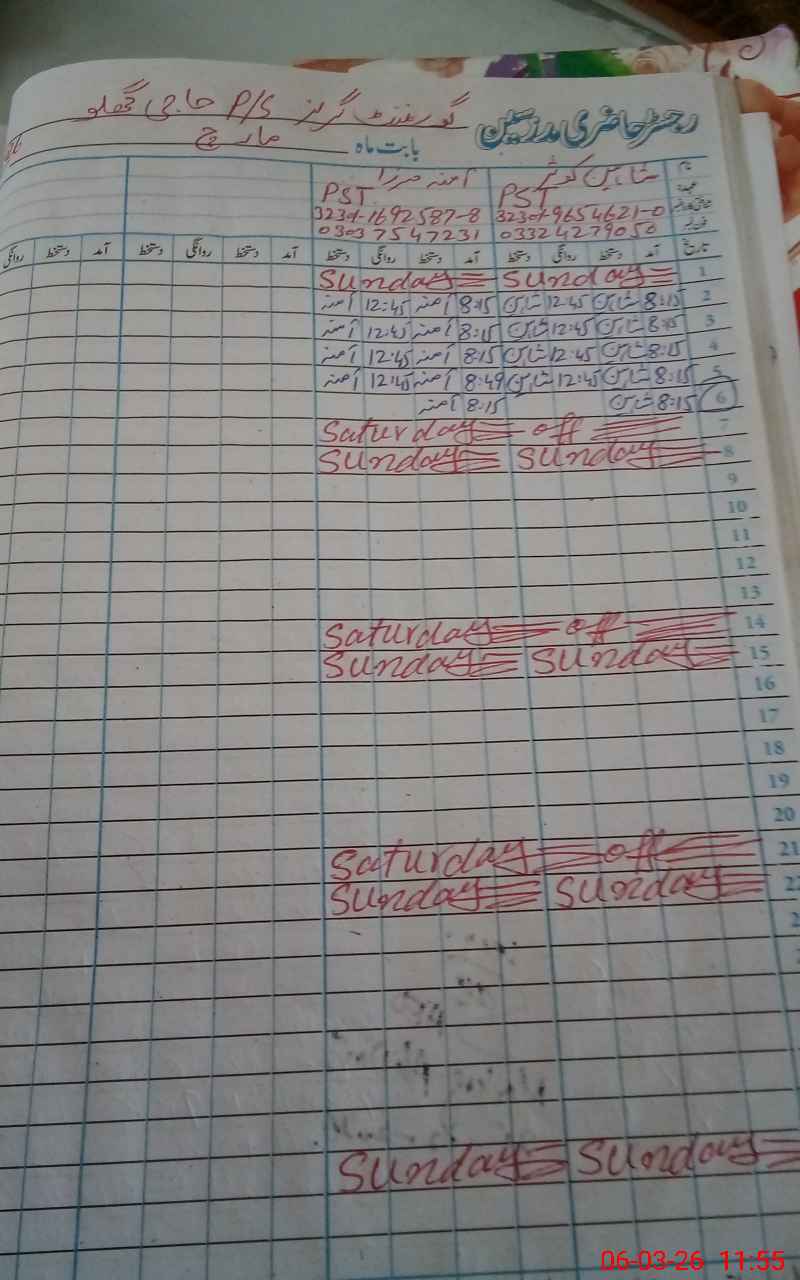 گورنمنٹ گرلز P/S حاجی
رجسٹر حاضری مدرسین
بابت ماہ مارچ
نام شاہین کوثر آمنہ مرزا
عہدہ PST PST
32304-9654621-0 32304-1692587-8
03324279050 03037547231
تاریخ آمد دستخط روانگی دستخط آمد دستخط روانگی دستخط آمد دستخط روانگی دستخط آمد دستخط روانگی
1 Sunday Sunday
2 8:15 شاہین 12:45 شاہین 8:15 آمنہ 12:45 آمنہ
3 8:15 شاہین 12:45 شاہین 8:15 آمنہ 12:45 آمنہ
4 8:15 شاہین 12:45 شاہین 8:15 آمنہ 12:45 آمنہ
5 8:15 شاہین 12:45 شاہین 8:49 آمنہ 12:45 آمنہ
6 8:15 شاہین 8:15 آمنہ
7 Saturday off
8 Sunday Sunday
9
10
11
12
13
14 Saturday off
15 Sunday Sunday
16
17
18
19
20
21 Saturday off
22 Sunday Sunday
Sunday Sunday
06-03-26 11:55